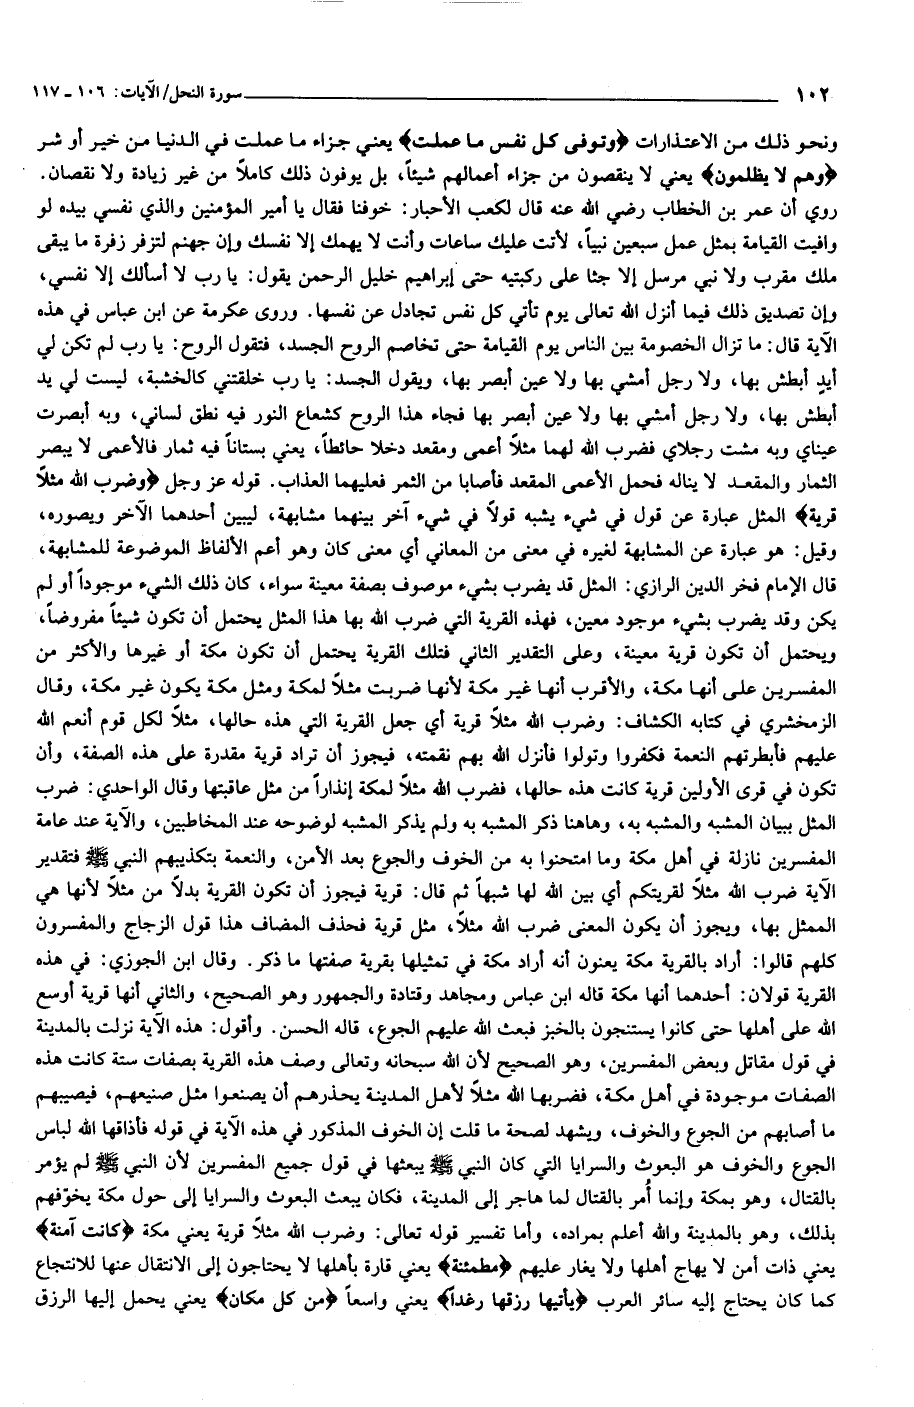 ١٠٢ سورة النحل/ الآيات: ١٠٦ - ١١٧
ونحو ذلك من الاعتذارات ﴿وتوفى كل نفس ما عملت﴾ يعني جزاء ما عملت في الدنيا من خير أو شر
﴿وهم لا يظلمون﴾ يعني لا ينقصون من جزاء أعمالهم شيئاً، بل يوفون ذلك كاملاً من غير زيادة ولا نقصان.
روي أن عمر بن الخطاب رضي الله عنه قال لكعب الأحبار: خوفنا فقال يا أمير المؤمنين والذي نفسي بيده لو
وافيت القيامة بمثل عمل سبعين نبياً، لأتت عليك ساعات وأنت لا يهمك إلا نفسك وإن جهنم لتزفر زفرة ما يبقى
ملك مقرب ولا نبي مرسل إلا جثا على ركبتيه حتى إبراهيم خليل الرحمن يقول: يا رب لا أسألك إلا نفسي،
وإن تصديق ذلك فيما أنزل الله تعالى يوم تأتي كل نفس تجادل عن نفسها. وروى عكرمة عن ابن عباس في هذه
الآية قال: ما تزال الخصومة بين الناس يوم القيامة حتى تخاصم الروح الجسد، فتقول الروح: يا رب لم تكن لي
أيدٍ أبطش بها، ولا رجل أمشي بها ولا عين أبصر بها، ويقول الجسد: يا رب خلقتني كالخشبة، ليست لي يد
أبطش بها، ولا رجل أمشي بها ولا عين أبصر بها فجاء هذا الروح كشعاع النور فيه نطق لساني، وبه أبصرت
عيناي وبه مشت رجلاي فضرب الله لهما مثلاً أعمى ومقعد دخلا حائطاً، يعني بستاناً فيه ثمار فالأعمى لا يبصر
الثمار والمقعد لا يناله فحمل الأعمى المقعد فأصابا من الثمر فعليهما العذاب. قوله عز وجل ﴿وضرب الله مثلاً
قرية﴾ المثل عبارة عن قول في شيء يشبه قولاً في شيء آخر بينهما مشابهة، ليبين أحدهما الآخر ويصوره،
وقيل: هو عبارة عن المشابهة لغيره في معنى من المعاني أي معنى كان وهو أعم الألفاظ الموضوعة للمشابهة،
قال الإمام فخر الدين الرازي: المثل قد يضرب بشيء موصوف بصفة معينة سواء، كان ذلك الشيء موجوداً أو لم
يكن وقد يضرب بشيء موجود معين، فهذه القرية التي ضرب الله بها هذا المثل يحتمل أن تكون شيئاً مفروضاً،
ويحتمل أن تكون قرية معينة، وعلى التقدير الثاني فتلك القرية يحتمل أن تكون مكة أو غيرها والأكثر من
المفسرين على أنها مكة، والأقرب أنها غير مكة لأنها ضربت مثلاً لمكة ومثل مكة يكون غير مكة، وقال
الزمخشري في كتابه الكشاف: وضرب الله مثلاً قرية أي جعل القرية التي هذه حالها، مثلاً لكل قوم أنعم الله
عليهم فأبطرتهم النعمة فكفروا وتولوا فأنزل الله بهم نقمته، فيجوز أن تراد قرية مقدرة على هذه الصفة، وأن
تكون في قرى الأولين قرية كانت هذه حالها، فضرب الله مثلاً لمكة إنذاراً من مثل عاقبتها وقال الواحدي: ضرب
المثل ببيان المشبه والمشبه به، وهاهنا ذكر المشبه به ولم يذكر المشبه لوضوحه عند المخاطبين، والآية عند عامة
المفسرين نازلة في أهل مكة وما امتحنوا به من الخوف والجوع بعد الأمن، والنعمة بتكذيبهم النبي ﷺ فتقدير
الآية ضرب الله مثلاً لقريتكم أي بين الله لها شبهاً ثم قال: قرية فيجوز أن تكون القرية بدلاً من مثلاً لأنها هي
الممثل بها، ويجوز أن يكون المعنى ضرب الله مثلاً، مثل قرية فحذف المضاف هذا قول الزجاج والمفسرون
كلهم قالوا: أراد بالقرية مكة يعنون أنه أراد مكة في تمثيلها بقرية صفتها ما ذكر. وقال ابن الجوزي: في هذه
القرية قولان: أحدهما أنها مكة قاله ابن عباس ومجاهد وقتادة والجمهور وهو الصحيح، والثاني أنها قرية أوسع
الله على أهلها حتى كانوا يستنجون بالخبز فبعث الله عليهم الجوع، قاله الحسن. وأقول: هذه الآية نزلت بالمدينة
في قول مقاتل وبعض المفسرين، وهو الصحيح لأن الله سبحانه وتعالى وصف هذه القرية بصفات ستة كانت هذه
الصفات موجودة في أهل مكة، فضربها الله مثلاً لأهل المدينة يحذرهم أن يصنعوا مثل صنيعهم، فيصيبهم
ما أصابهم من الجوع والخوف، ويشهد لصحة ما قلت إن الخوف المذكور في هذه الآية في قوله فأذاقها الله لباس
الجوع والخوف هو البعوث والسرايا التي كان النبي ﷺ يبعثها في قول جميع المفسرين لأن النبي ﷺ لم يؤمر
بالقتال، وهو بمكة وإنما أُمر بالقتال لما هاجر إلى المدينة، فكان يبعث البعوث والسرايا إلى حول مكة يخوّفهم
بذلك، وهو بالمدينة والله أعلم بمراده، وأما تفسير قوله تعالى: وضرب الله مثلاً قرية يعني مكة ﴿كانت آمنة﴾
يعني ذات أمن لا يهاج أهلها ولا يغار عليهم ﴿مطمئنة﴾ يعني قارة بأهلها لا يحتاجون إلى الانتقال عنها للانتجاع
كما كان يحتاج إليه سائر العرب ﴿يأتيها رزقها رغداً﴾ يعني واسعاً ﴿من كل مكان﴾ يعني يحمل إليها الرزق